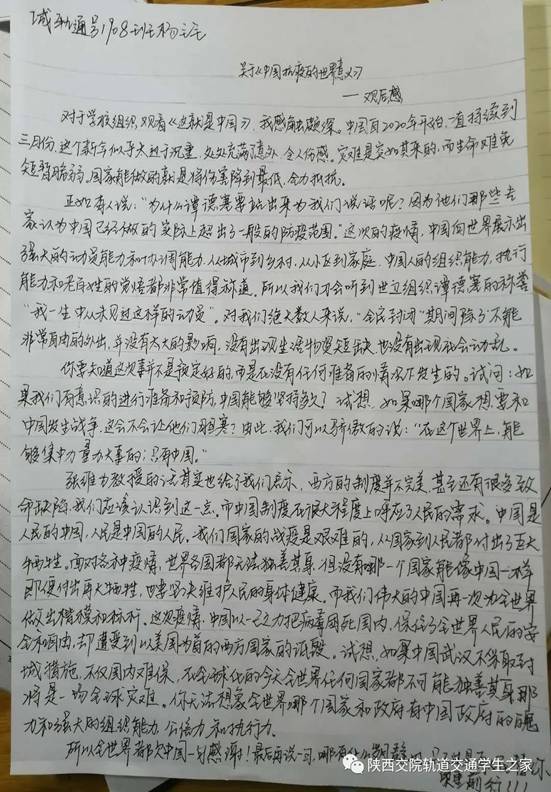 城轨通号1908班杨
关于《中国抗疫的世界意义》
——观后感
对于学校组织观看《这就是中国》，我感触颇深。中国自2020年开始一直持续到
三月份，这个新年似乎太过于沉重，处处充满意外，令人伤感。灾难是突如其来的，而生命难免
短暂脆弱。国家能做的就是将伤害降到最低，全力抵抗。
正如有人说："为什么谭德塞要站出来为我们说话呢？因为他们那些专
家认为中国已经做的实际上超出了一般的防疫范围。"这次的疫情，中国向世界展示出
强大的动员能力和协调能力，从城市到乡村，从小区到家庭，中国人的组织能力、执行
能力和老百姓的觉悟都非常值得称道。所以我们才会听到世卫组织谭德塞的称赞
"我一生中从未见过这样的动员"。对我们绝大数人来说，"全民封闭"期间除了不能
非常自由的外出，并没有太大的影响，没有出现生活物资短缺，也没有出现社会动乱。
你要知道这次事并不是预定好的，而是在没有任何准备的情况下发生的。试问：如
果我们有意识的进行准备和预防，中国能够坚持多久？试想，如果哪个国家想要和
中国发生战争，这会不会让他们胆寒？由此，我们可以骄傲的说："在这个世界上，能
够集中力量办大事的，只有中国。"
张维为教授的话其实也给了我们启示，西方的制度并不完美，甚至还有很多致
命缺陷，我们应该认识到这一点。而中国制度在很大程度上呼应了人民的需求。中国是
人民的中国，人民是中国的人民。我们国家的战疫是艰难的，从国家到人民都付出了巨大
牺牲。面对各种疫情，世界各国都无法独善其身，但没有哪一个国家能像中国一样
即便付出再大牺牲，也要坚决维护人民的身体健康，而我们伟大的中国再一次为全世界
做出楷模和标杆。这次疫情，中国以一己之力把病毒困死国内，保障了全世界人民的安
全和自由，却遭受到以美国为首的西方国家的诋毁。试想，如果中国武汉不采取封
城措施，不仅国内难保，在全球化的今天全世界任何国家都不可能独善其身，那
将是一场全球灾难。你无法想象全世界哪个国家和政府有中国政府的魄
力和强大的组织能力、公信力和执行力。
所以全世界都欠中国一封感谢！最后再说一句，哪有什么
前行！！！
陕西交院轨道交通学生之家